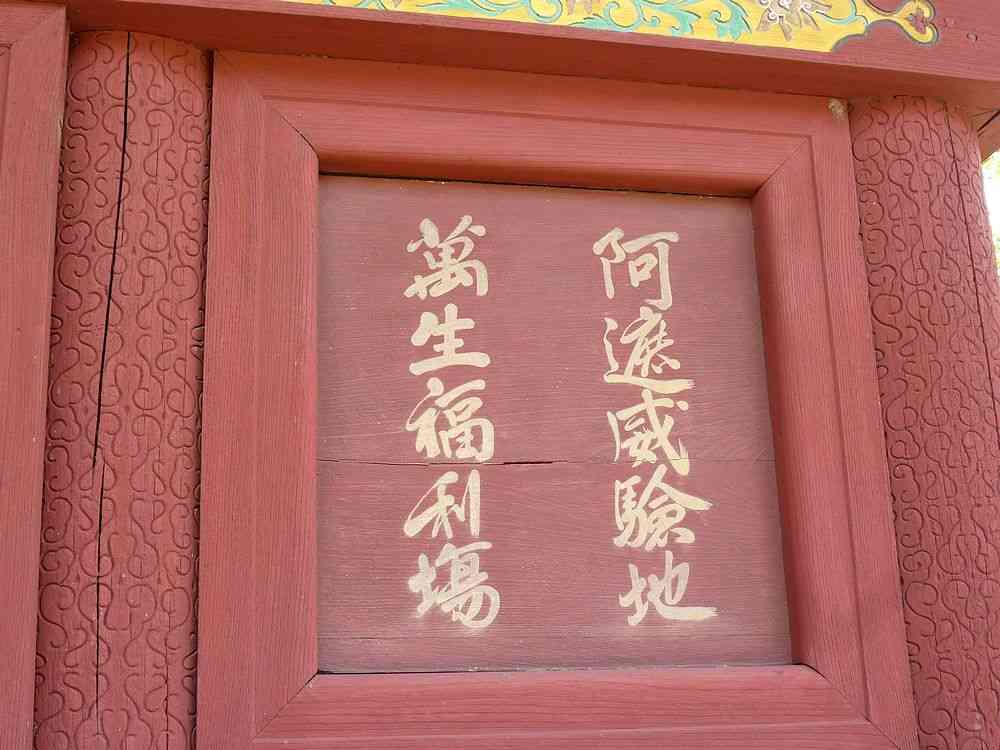 阿遮威驗地
萬生福利場